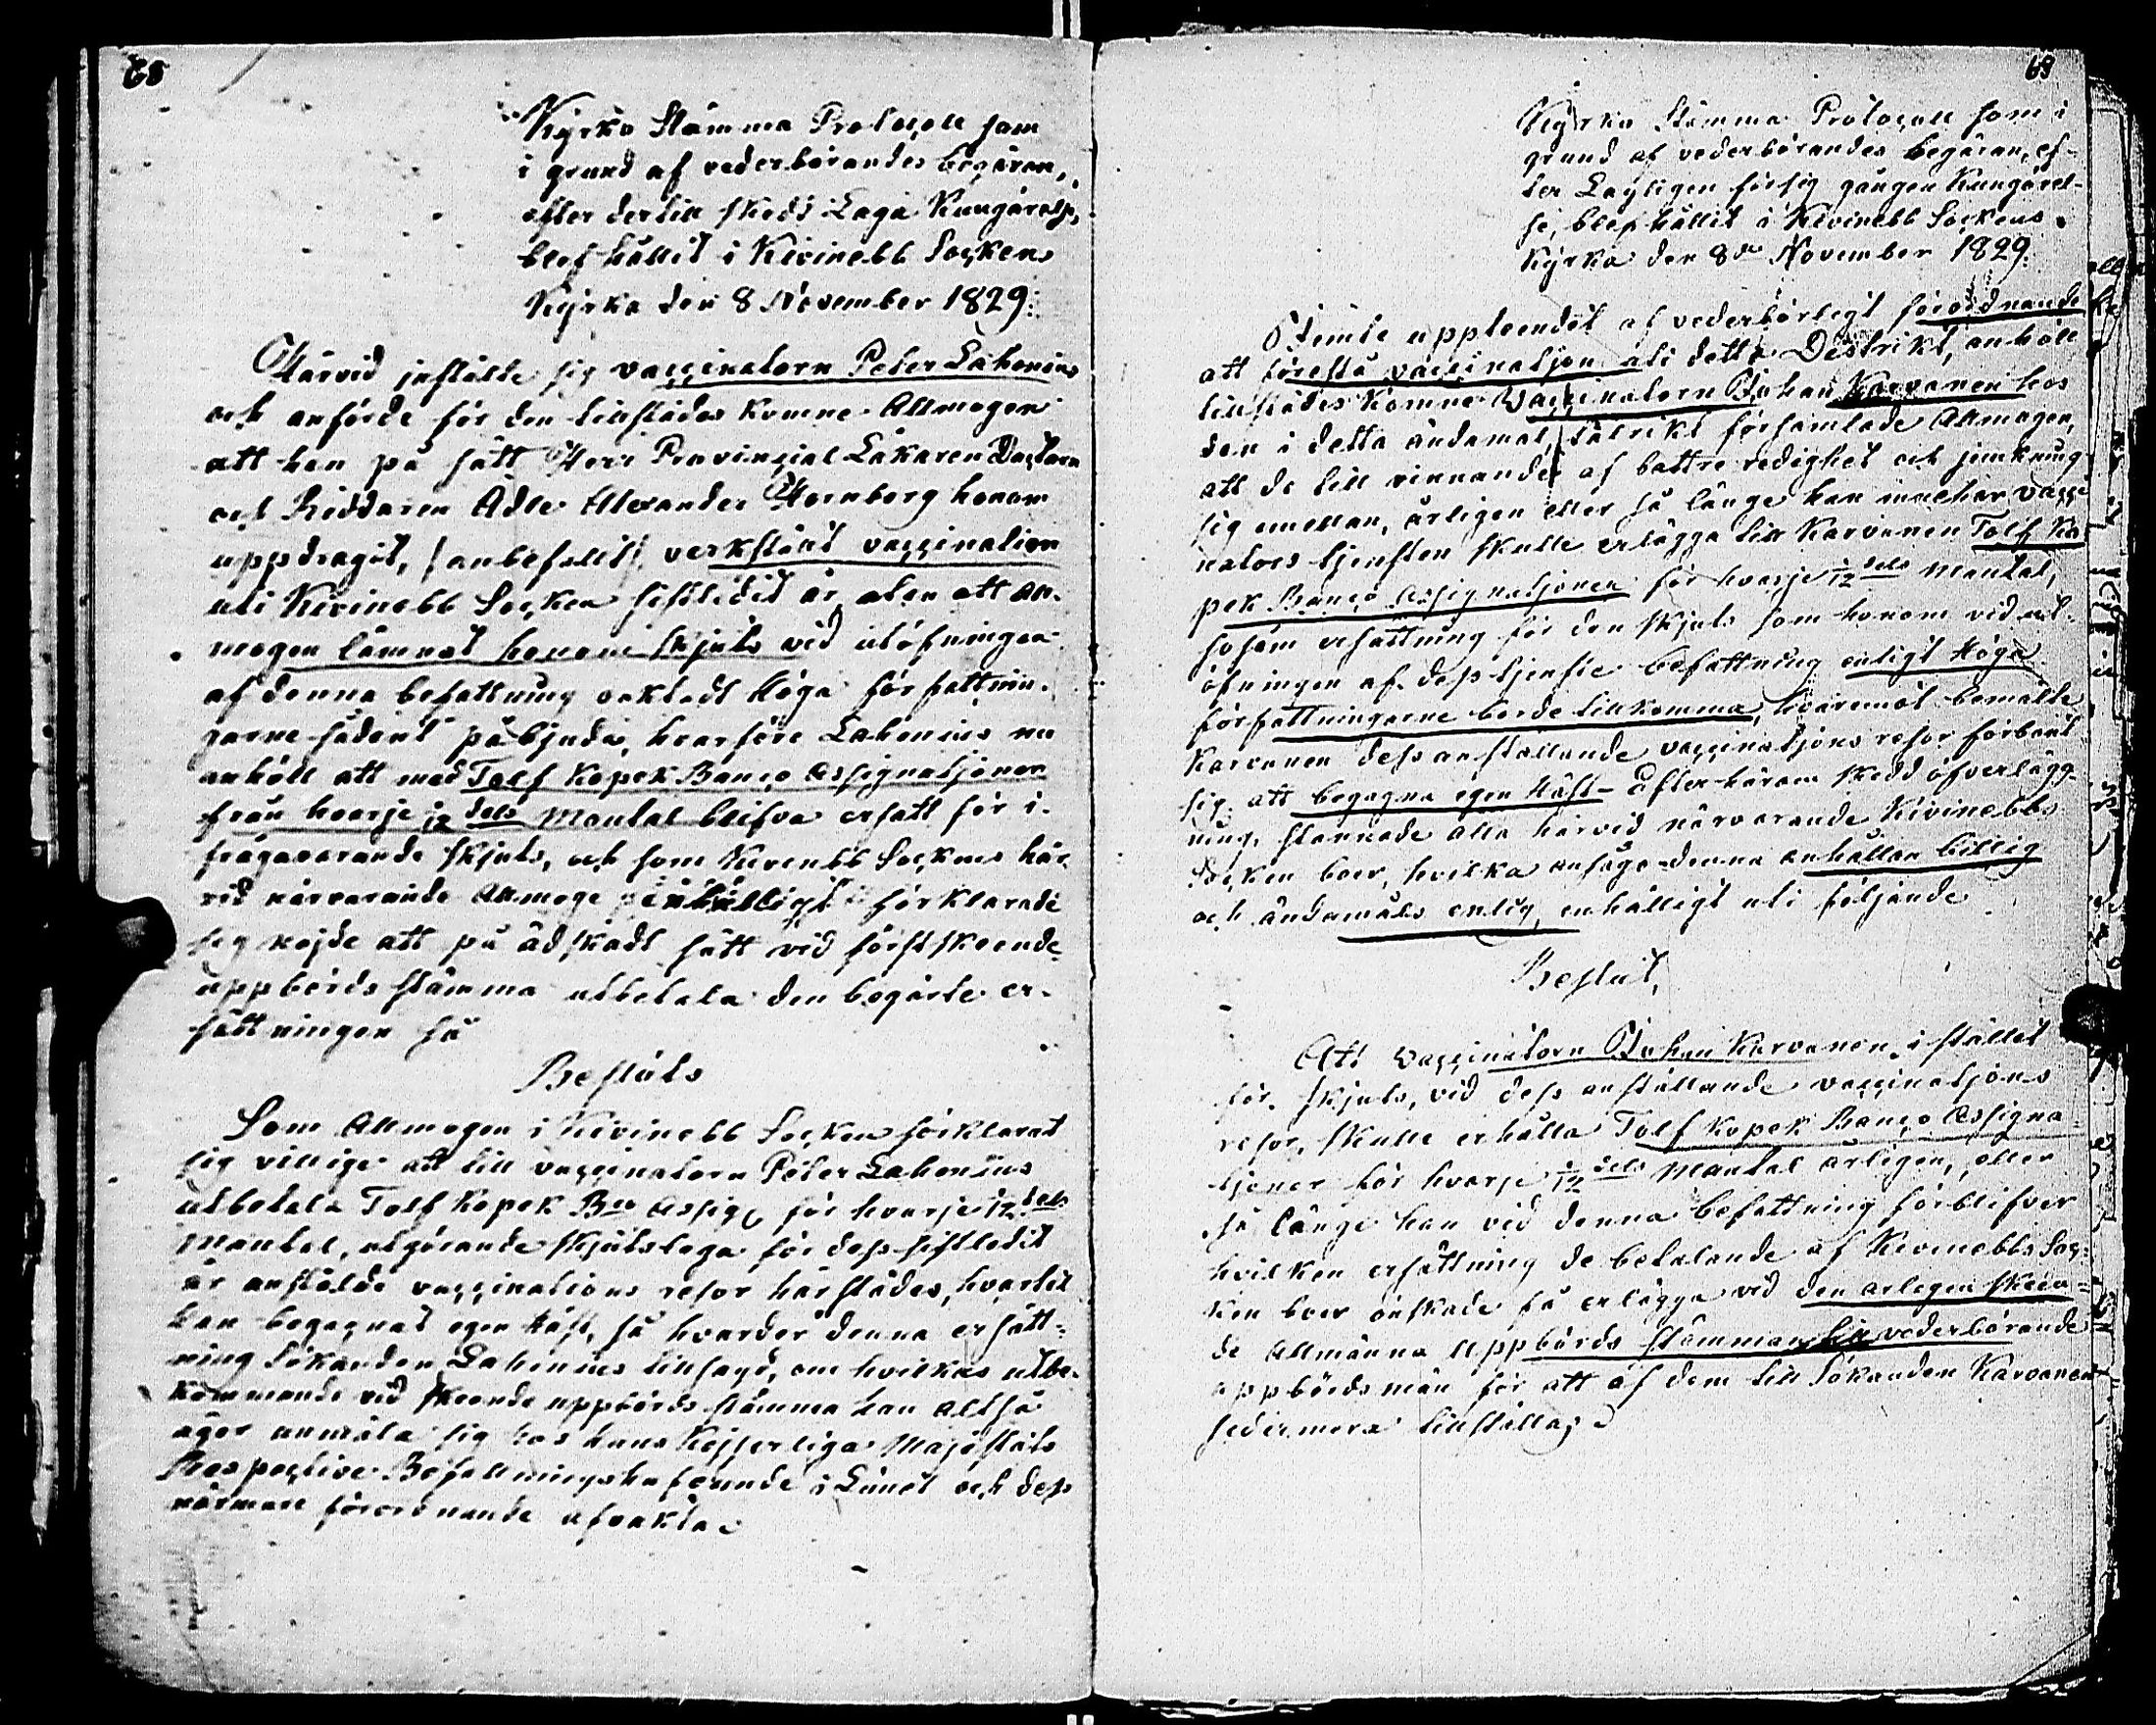 68
Kyrko Stämma Protocoll som
i grund af vederbörandes begäran,
efter dertill skedd Laga Kungörelse,
blef hållit i Kivinebb Sockens
Kyrka den 8 November 1829.
Härvid instälte sig vaccinatorn Peter Lahenius
och anförde för den tillstädes komne Allmogen
att han på sätt Herr Provincial Läkaren Doctorn
och Riddaren Ädle Alexander Hornborg honom
uppdragit, /:anbefallt:/ verkstält vaccination
uti Kivinebb Socken sistledit år, utan att All-
mogen lämnat honom skjuts vid utöfningen
af denna befattning oaktadt Höga författnin-
garne sådant påbjuda, hvarföre Lahenius nu
anhöll att med Tolf Kopek Banco Assignationer
från hvarje 1/12 dels Mantal blifva ersatt för i-
frågavarande skjuts, och som Kivinebb Sockens här-
vid närvarande Allmoge enhälligt förklarade
sig nöjde att på ädskadt sätt vid först skeende
uppbörds stämma utbetala den begärte er-
sättningen så
Besluts
Som Allmogen i Kivinebb Socken förklarat
sig villige att till vaccinatorn Peter Lahenius
utbetala Tolf Kopek Bco Assig: för hvarje 1/12 dels
Mantal, utgörande skjutslega för dess sistledit
år anstälde vaccinations resor härstädes, hvartil
han begagnat egen häst, så hvarder denna ersätt-
ning Sökanden Lahenius tillsagd, om hvilkas utbe-
kommande vid skeende uppbörds stämma han altså
äger anmäla sig hos hans Kejserliga Majestäts
Respective Befallningshafvande i Länet och dess
närmare förordnande afvakta.
69
Kyrko Stämma Protocoll som i
grund af vederbörandes begäran, ef-
ter Lagligen försig gången Kungörel-
se, blef hållit i Kivinebb Sockens
Kyrka den 8de November 1829.
Jemte uppteendet af vederbörligt förordnande
att förestå vaccinatjon uti detta Destrikt, anhöll
tillstädes Komne Vaccinatorn Johan Karvanen hos
den i detta ändamål, talrikt församlade Allmogen,
att de till vinnande af bättre redighet och jemkning
sig emellan, årligen eller så länge han innehar vacci-
nators tjensten skulle erlägga till Karvanen Tolf Ko
pek Banco Assignatjoner för hvarje 1/12 dels Mantal,
såsom ersättning för den skjuts som honom vid ut-
öfningen af dess tjenste befattning enligt Höga
författningarne borde tillkomma, hvaremot bemälte
Karvanen dess anställande vaccinatjons resor förbant
sig att begagna egen Häst- Efter härom skedd öfverlägg-
ning, stannade alla härvid närvarande Kivinebbs
Socken boer, hvilka ansågo denna anhållan billig
och ändamåls enlig, enhälligt uti följande
Beslut,
Att vaccinatorn Johan Karvanen, i stället
för skjuts, vid dess anställande vaccinatjons
resor, skulle erhålla Tolf Kopek Banco Assigna-
tjoner för hvarje 1/12 dels Mantal årligen, eller
så länge han vid denna befattning förblifver
hvilken ersättning de betalande af Kivinebbs Soc-
ken boer önskade få erlägga vid den årligen skeen-
de Allmänna Uppbörds stämman till vederbörande
uppbördsmän för att af dem till Sökanden Karvanen
sedermera tillställas.